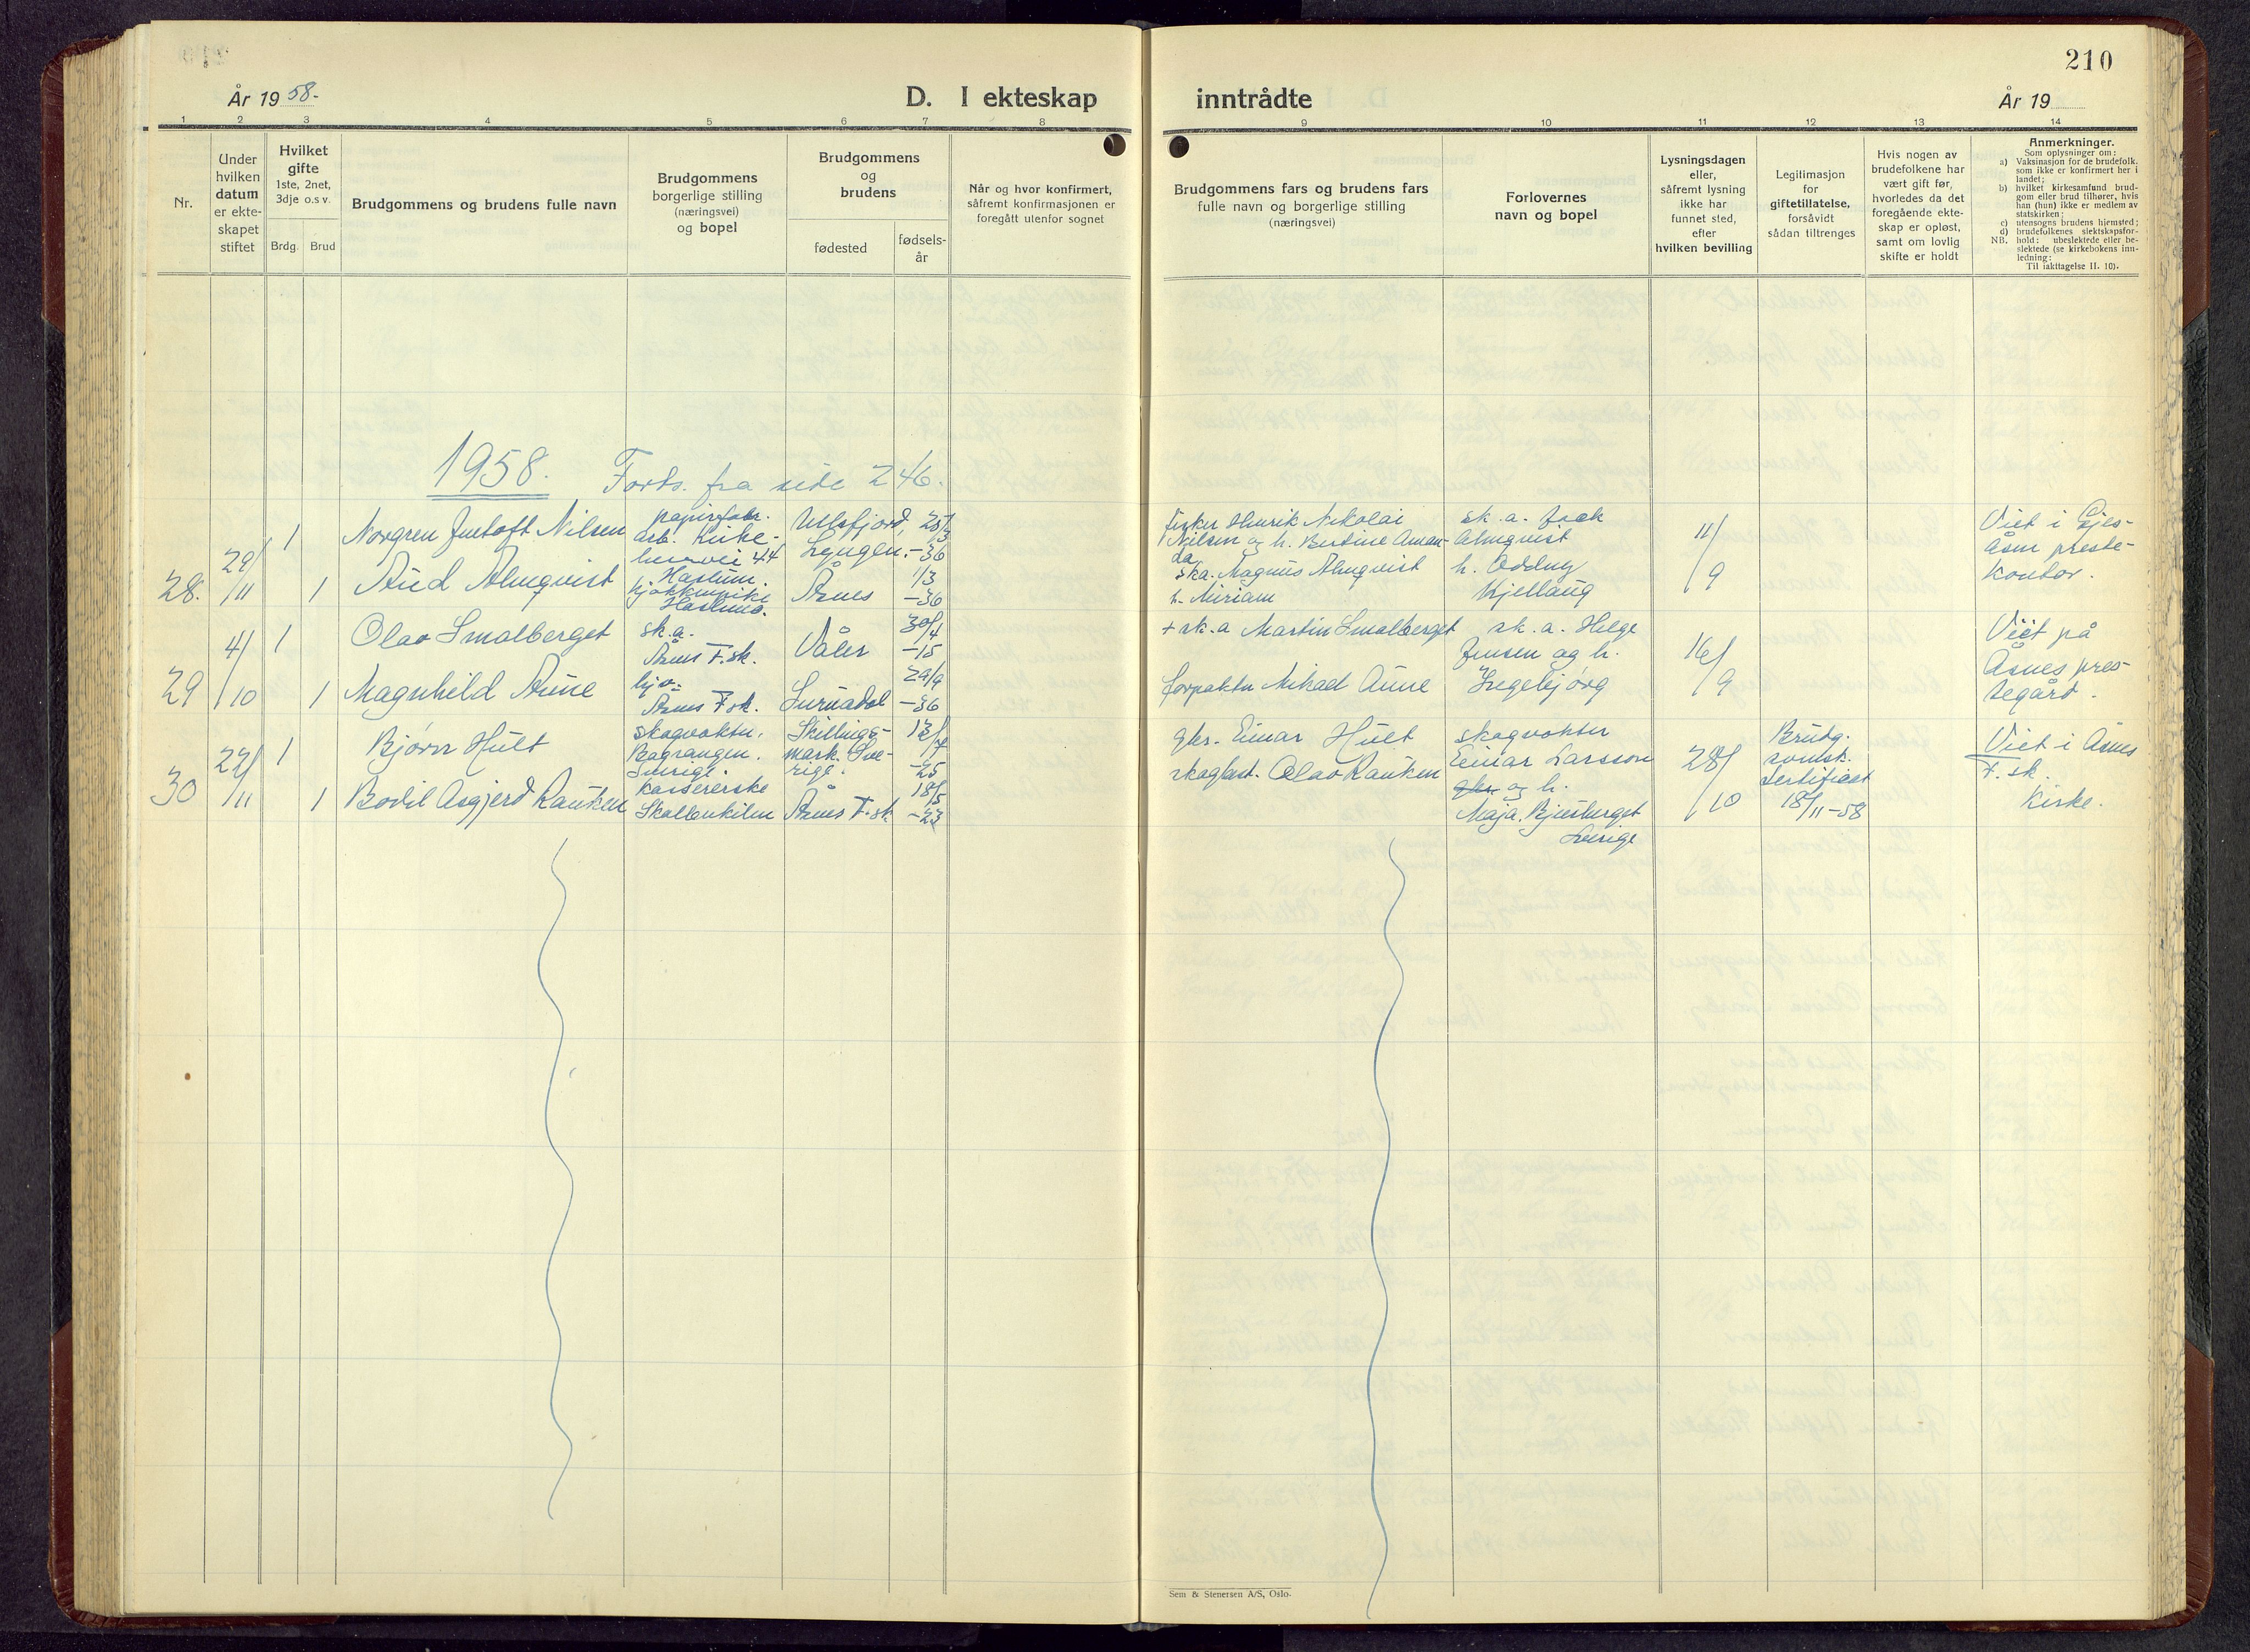 210
År 1958.
D. I ekteskap inntrådte
År 19
1 2 3 4 5 6 7 8 9 10 11 12 13 14
Nr.
Under
hvilken
datum
er ekte-
skapet
stiftet
Hvilket
gifte
1ste, 2net,
3dje o.s v.
Brdg. Brud
Brudgommens og brudens fulle navn
Brudgommens
borgerlige stilling
(næringsvei)
og bopel
Brudgommens
og
brudens
fødested
fødsels-
år
Når og hvor konfirmert,
såfremt konfirmasjonen er
foregått utenfor sognet
Brudgommens fars og brudens fars
fulle navn og borgerlige stilling
(næringsvei)
Forlovernes
navn og bopel
Lysningsdagen
eller,
såfremt lysning
ikke har
funnet sted,
efter
hvilken bevilling
Legitimasjon
for
giftetillatelse,
forsåvidt
sådan tiltrenges
Hvis nogen av
brudefolkene har
vært gift før,
hvorledes da det
foregående ekte-
skap er opløst,
samt om lovlig
skifte er holdt
Anmerkninger.
Som oplysninger om:
a) Vaksinasjon for de brudefolk.
som ikke er konfirmert her i
landet;
b) hvilket kirkesamfund brud-
gom eller brud tilhører, hvis
han (hun) ikke er medlem av
statskirken;
c) utensogns brudens hjemsted;
d) brudefolkenes slektskapsfor-
NB. hold: ubeslektede eller be-
slektede (se kirkebokens inn-
ledning:
Til iakttagelse II. 10).
1958. Forts. fra side 246.
28.
29/11
1
Norgren Jentoft Nilsen
papirfabr.
arb. Kirke-
veien 44
Haslum.
Ullsfjord,
Lyngen.
25/3
-36
fisker Henrik Nikolai
Nilsen og h. Bertine Aman-
da
sk. a.
Almqvist
h. Oddny
Kjellaug
11/9
Viet i
Åsnes preste-
kontor.
1
Aud Almqvist
kjøkkenpike
Haslum.
Åsnes
1/3
-36
sk.a. Magnus Almqvist
h. Miriam
29
4/10
1
Olav Smalberget
sk.a.
Åsnes F.sk.
Våler
30/4
-15
+ sk.a Martin Smalberget
sk. a. Helge
Jensen og h.
Ingebjørg
16/9
Viet på
Åsnes pres-
tegård.
1
Magnhild Aune
Åsnes F.sk.
Surnadal
29/9
-36
forpakter Mikael Aune
30
22/11
1
Bjørn Hult
skogvokter.
Bograngen.
Sverige.
Skillings-
mark. Sve-
rige.
13/4
-25
gbr. Einar Hult
skogvokter
Einar Larsson
gbr. og h.
Maja. Bjurberget
Sverige
28/10
Brudg.
svensk.
sertifikat
18/11-58
Viet i Åsnes
F. sk.
Kirke.
1
Bodil Asgjerd Rauken
kassererske
Skallenkilen
Åsnes F.sk
18/5
-23
skogbest. Olav Rauken
Sem & Stenersen A/S, Oslo.